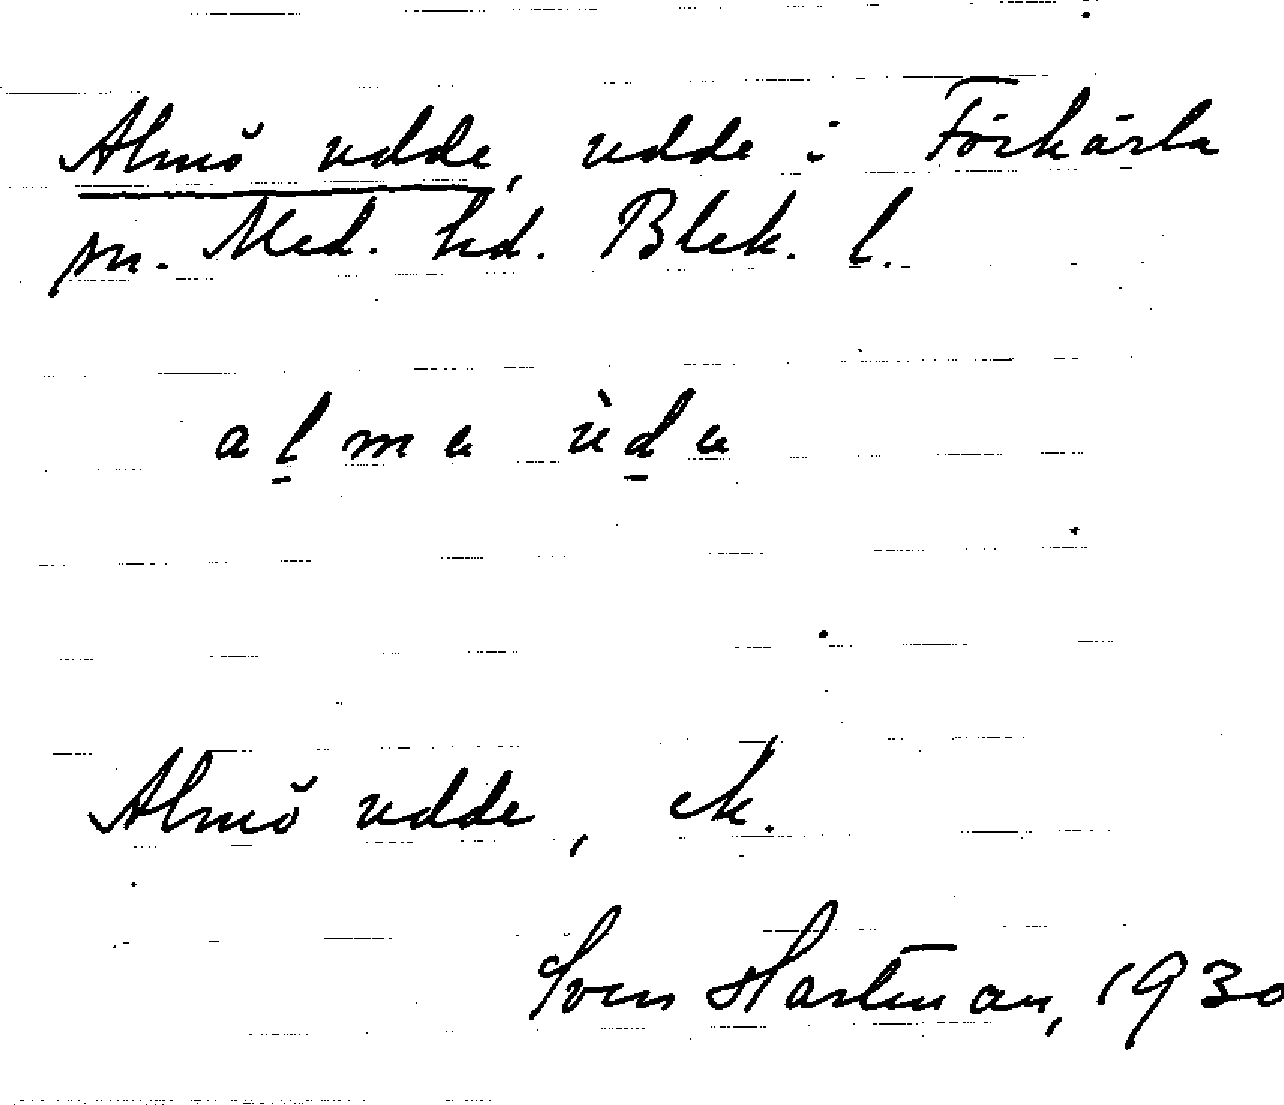 Almö udde, udde i Förkärla
sn. Med. hd. Blek. l.
alma ùda
Almö udde, ek.
Sven Hartman, 1930